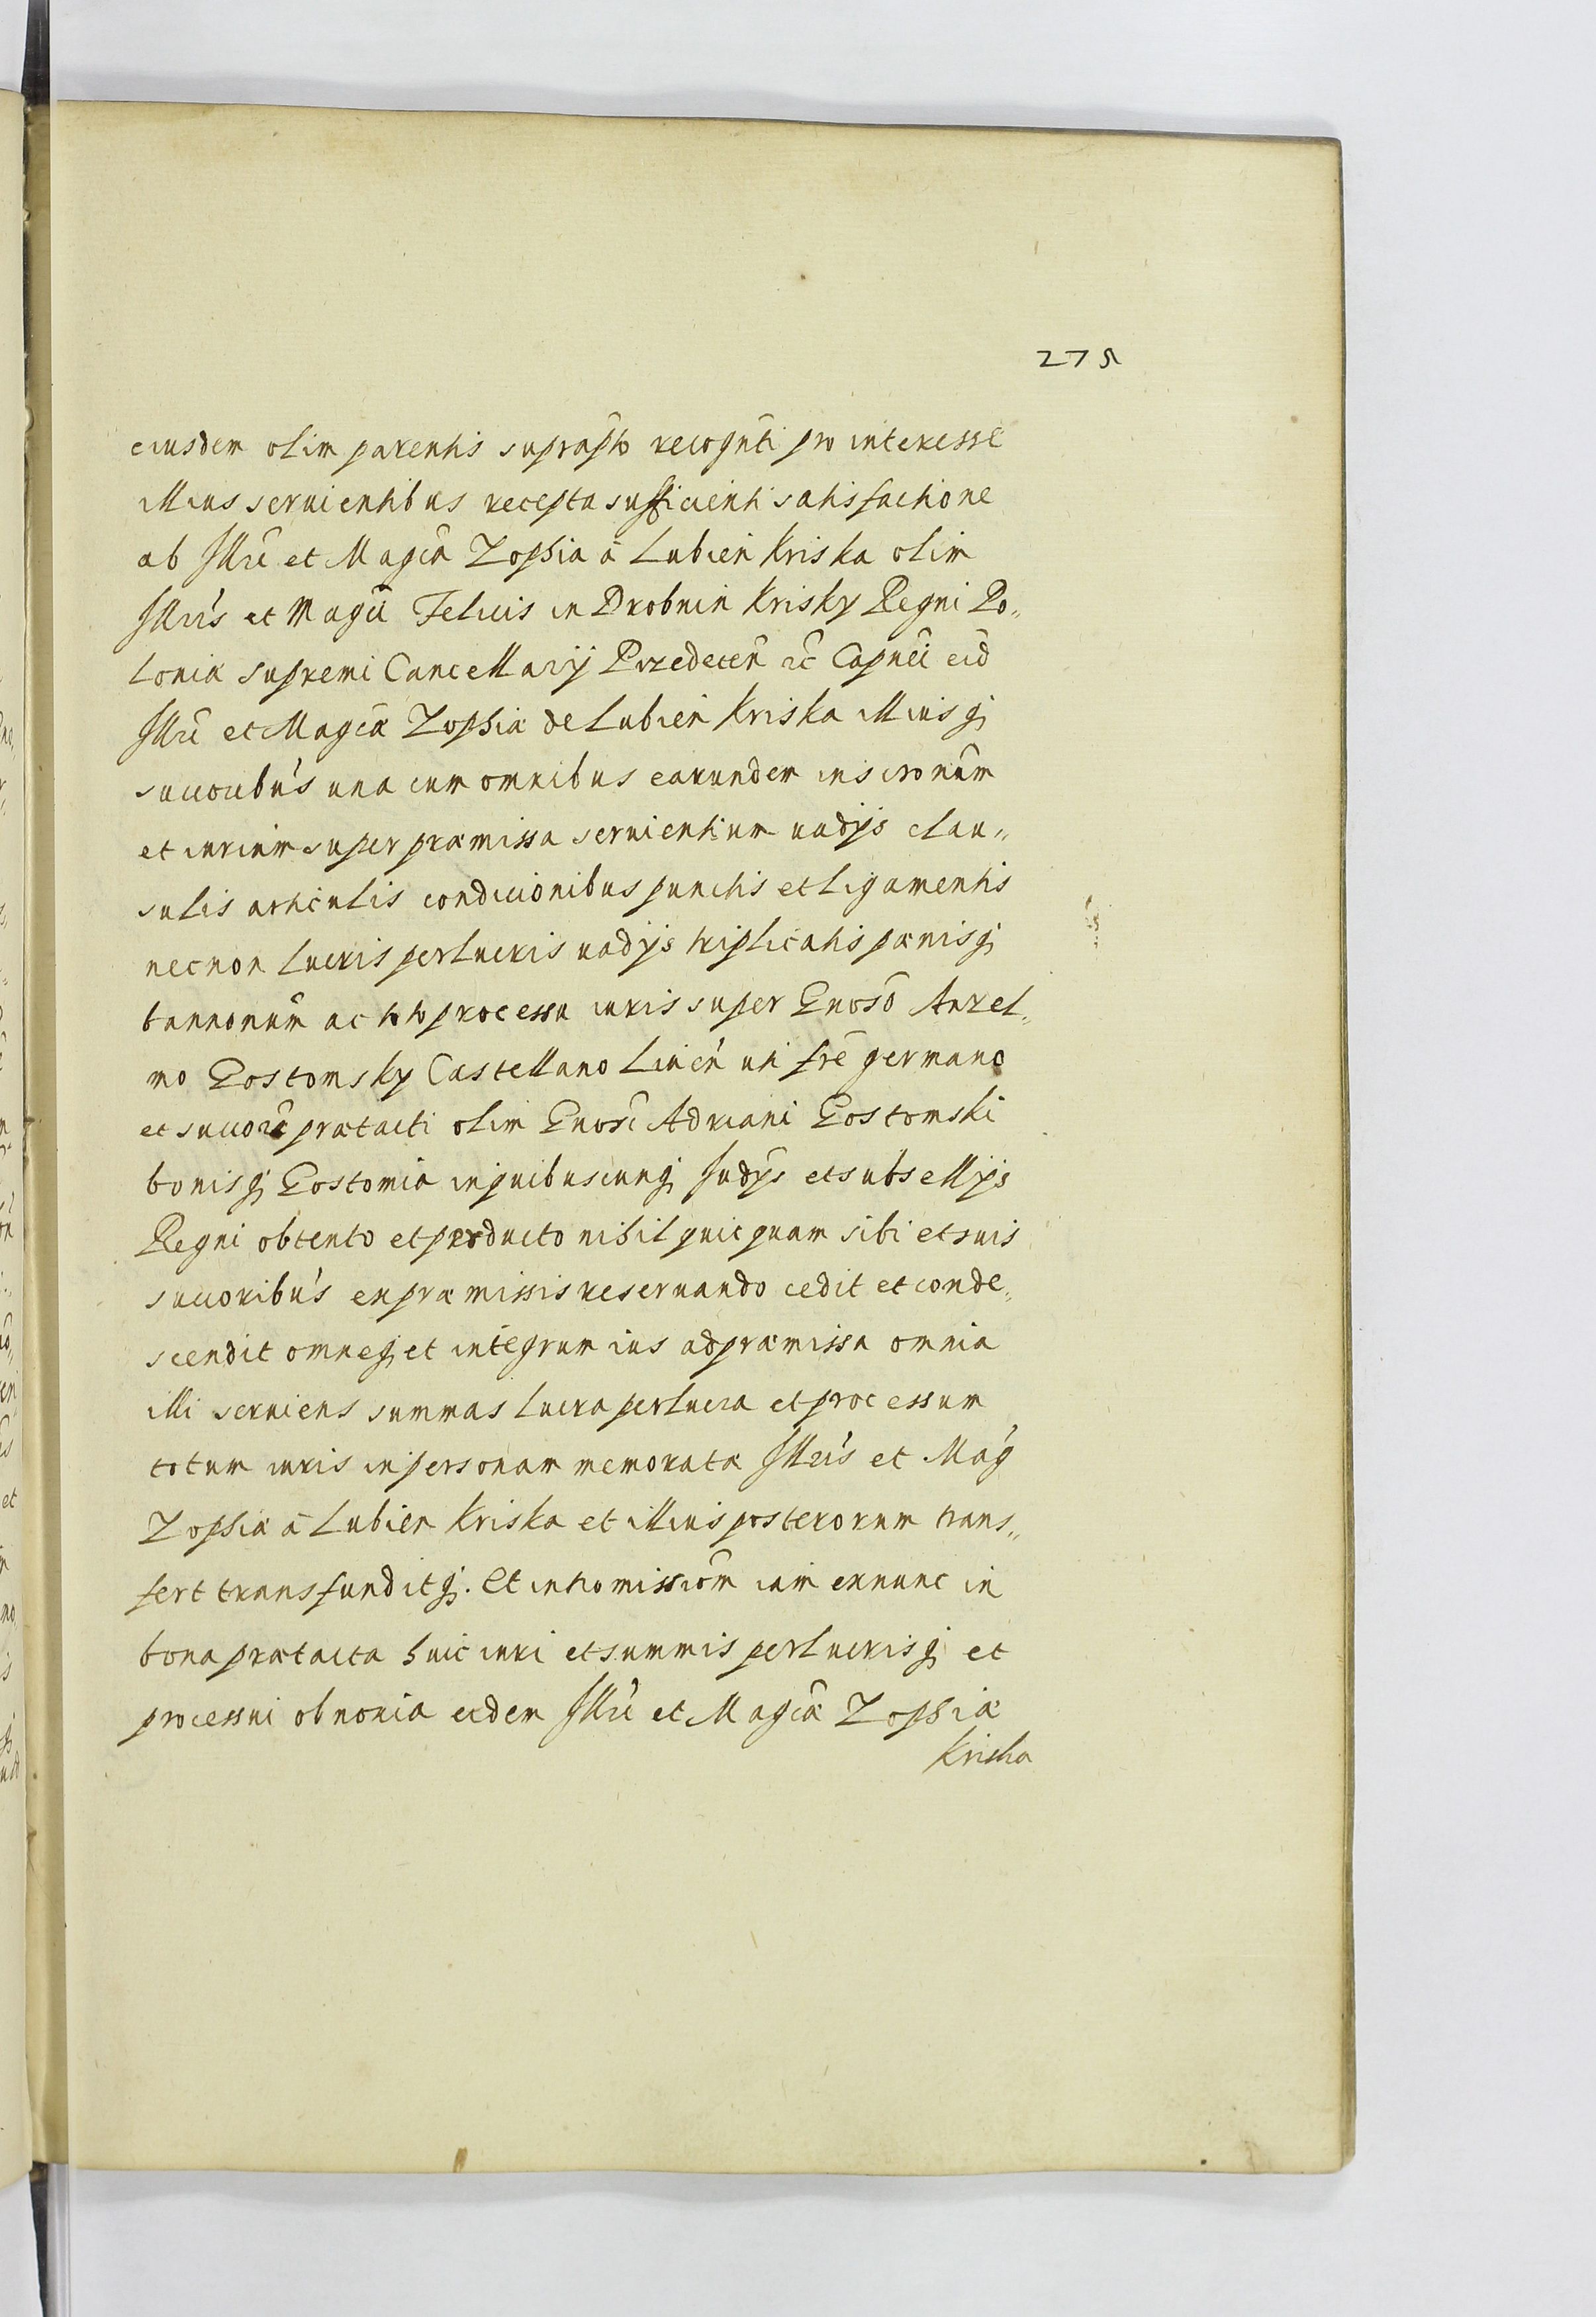 275
eiusdem olim parentis suprapto recognti pro interesse
illius seruientibus recepta sufficienti satisfactione
ab Illri et Magca Zophia a Lubien Kriska olim
Illris et Magci Felicis in Drobnin Krisky Regni Po„
loniæ supremi Cancellarij Przedecen ac Capnei eid
Illri et Magcæ Zophiæ de Lubien Kriska illiusq;
succoribus una cum omnibus earundem inscronum
et iurium super præmissa seruientium uadijs clau„
sulis articulis condicionibus punctis et ligamentis
necnon lucris perlucris uadijs triplicatis pænisq;
bannonum ac toto processu iuris super Gnoso Anzel„
mo Gostomsky Castellano Liuen uti fre germano
et succore prætacti olim Gnosi Adriani Gostomski
bonisq; Gostomia in quibuscunq; Iudijs et subsellijs
Regni obtento et producto nihil quicquam sibi et suis
succoribus ex præmissis reseruando cedit et conde„
scendit omneq; et integrum ius ad præmissa omnia
illi seruiens summas lucra perlucra et processum
totum iuris in personam memoratæ Illris et Mag
Zophiæ a Lubien Kriska et illius posterorum trans„
fert transfunditq;. Et intromissiom iam exnunc in
bona prætacta huic iuri et summis perlucrisq; et
processui obnoxia eidem Illri et Magcæ Zophiæ
Kriska